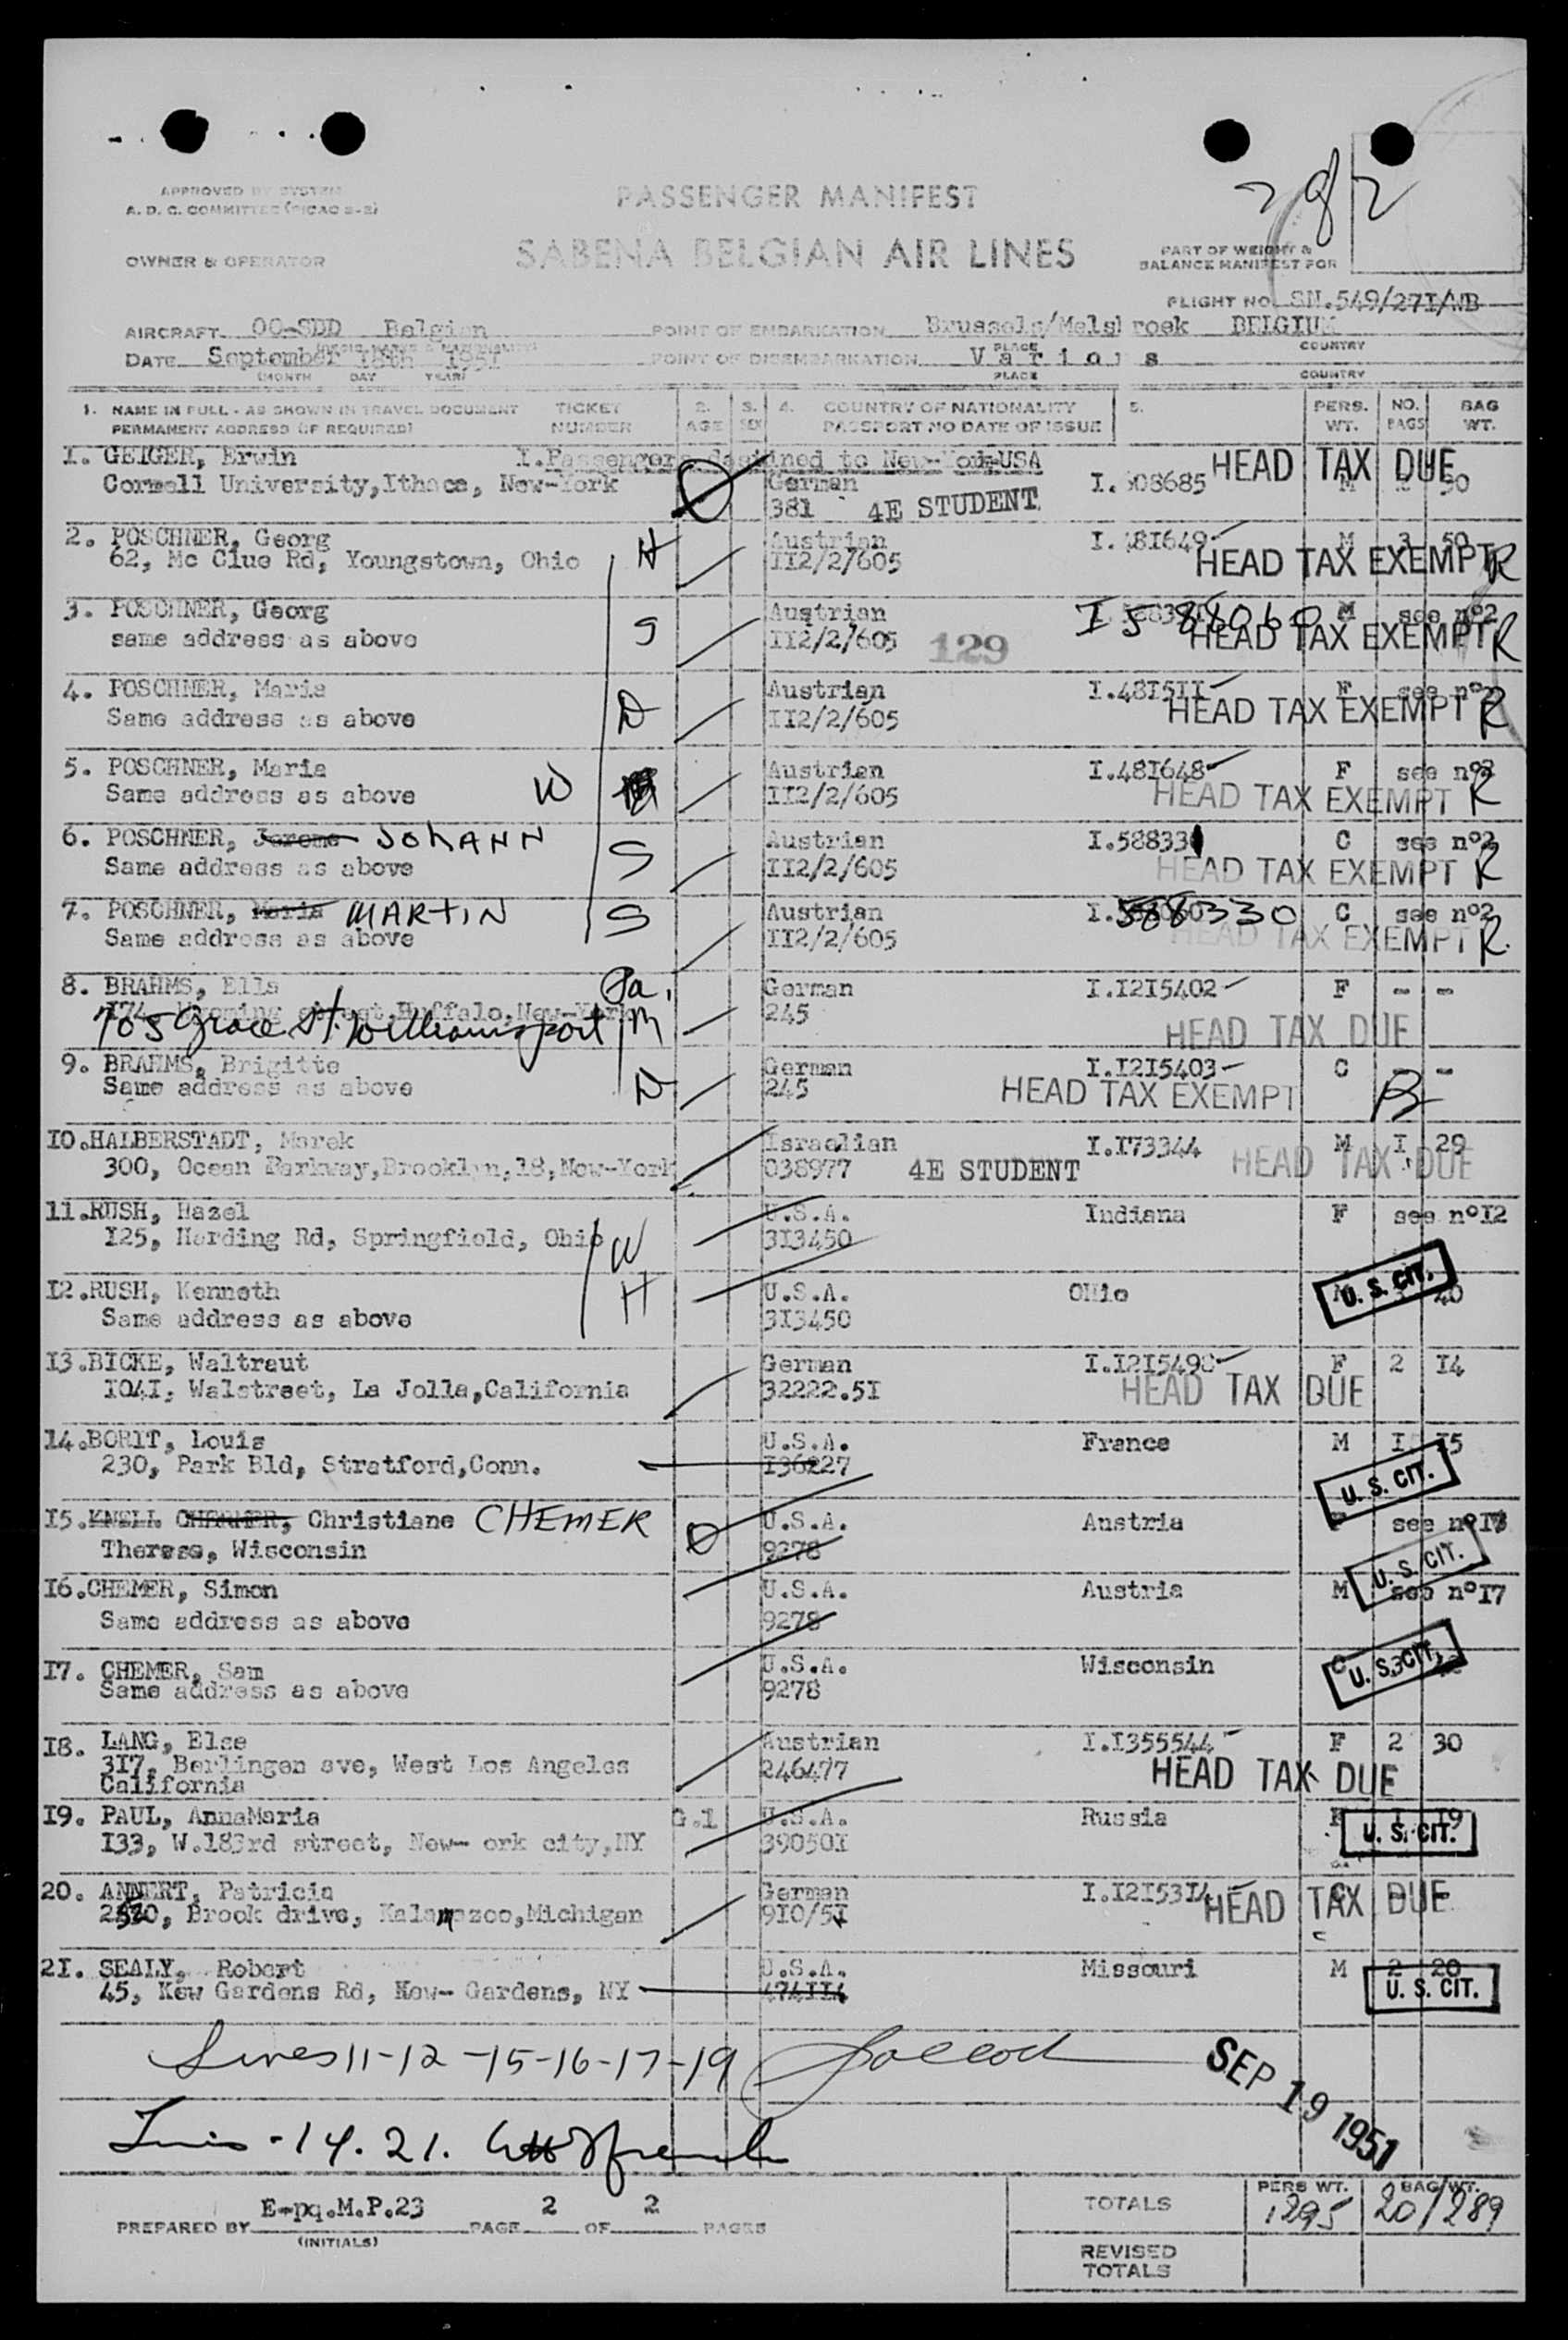 282
APPROVED BY SYSTEM
A. D. C. COMMITTEE (PICAO 2-2)
PASSENGER MANIFEST
SABENA BELGIAN AIR LINES
OWNER & OPERATOR
PART OF WEIGHT &
BALANCE MANIFEST FOR
FLIGHT NO. SN.549/27I/WB
AIRCRAFT OO-SDD Belgian POINT OF EMBARKATION Brussels/Melsbroek BELGIUM
PLACE COUNTRY
DATE September 18th 1951 POINT OF DISEMBARKATION Various
(MONTH DAY YEAR) PLACE COUNTRY
1. NAME IN FULL - AS SHOWN IN TRAVEL DOCUMENT TICKET 2. 3. 4. COUNTRY OF NATIONALITY 5. PERS. NO. BAG
PERMANENT ADDRESS (IF REQUIRED) NUMBER AGE SEX PASSPORT NO DATE OF ISSUE WT. BAGS WT.
I. GEIGER, Erwin I.Passengers destined to New-York-USA HEAD TAX DUE
Cornell University,Ithaca, New-York German I.508685 M 30
381 4E STUDENT
2. POSCHNER, Georg H Austrian I.481649 M 3 50
62, Mc Clue Rd, Youngstown, Ohio II2/2/605 HEAD TAX EXEMPT R
3. POSCHNER, Georg S Austrian I588060 M see nº2
same address as above II2/2/605 129 HEAD TAX EXEMPT R
4. POSCHNER, Maria D Austrian I.48I5II F see nº2
Same address as above II2/2/605 HEAD TAX EXEMPT R
5. POSCHNER, Maria W Austrian I.48I648 F see nº2
Same address as above II2/2/605 HEAD TAX EXEMPT R
6. POSCHNER, Jerome JOHANN S Austrian I.588331 C see nº2
Same address as above II2/2/605 HEAD TAX EXEMPT R
7. POSCHNER, Maria MARTIN S Austrian I.588330 C see nº2
Same address as above II2/2/605 HEAD TAX EXEMPT R.
8. BRAHMS, Ella Pa. German I.I2I5402 F - -
I74, Wyoming street,Buffalo,New-York 245
705 Grace St. Williamsport M HEAD TAX DUE
9. BRAHMS, Brigitte D German I.I2I5403 C - -
Same address as above 245 HEAD TAX EXEMPT R
IO.HALBERSTADT, Marek Israelian I.I73344 M I 29
300, Ocean Parkway,Brooklyn,18,New-York 038977 4E STUDENT HEAD TAX DUE
11.RUSH, Hazel W U.S.A. Indiana F see nºI2
I25, Harding Rd, Springfield, Ohio 3I3450
I2.RUSH, Kenneth H U.S.A. OHio M 40 U. S. CIT.
Same address as above 3I3450
I3.BICKE, Waltraut German I.I2I5498 F 2 I4
I04I, Walstreet, La Jolla,California 32222.5I HEAD TAX DUE
I4.BORIT, Louis U.S.A. France M I I5
230, Park Bld, Stratford,Conn. I36227 U. S. CIT.
I5.KNELL CHEMER, Christiane CHEMER U.S.A. Austria see nºI7
Theresa, Wisconsin 9278 U. S. CIT.
I6.CHEMER, Simon U.S.A. Austria M see nºI7
Same address as above 9278
I7. CHEMER, Sam U.S.A. Wisconsin C 3 U. S. CIT.
Same address as above 9278
I8. LANG, Else Austrian I.I355544 F 2 30
3I7, Berlingen ave, West Los Angeles 246477 HEAD TAX DUE
California
I9. PAUL, AnnaMaria G.1 U.S.A. Russia F I I9
I33, W.183rd street, New- ork city,NY 39050I U. S. CIT.
20. ANNERT, Patricia German I.I2I53I4 C HEAD TAX DUE
2520, Brook drive, Kalamazoo,Michigan 9I0/5I
2I. SEALY, Robert U.S.A. Missouri M 2 20
45, Kew Gardens Rd, Kew- Gardens, NY 474II4 U. S. CIT.
Lines 11-12-15-16-17-19
SEP 19 1951
Lines - 14. 21.
TOTALS PERS WT. 1295 BAG WT. 20/289
PREPARED BY E-pq.M.P.23 PAGE 2 OF 2 PAGES
(INITIALS)
REVISED
TOTALS